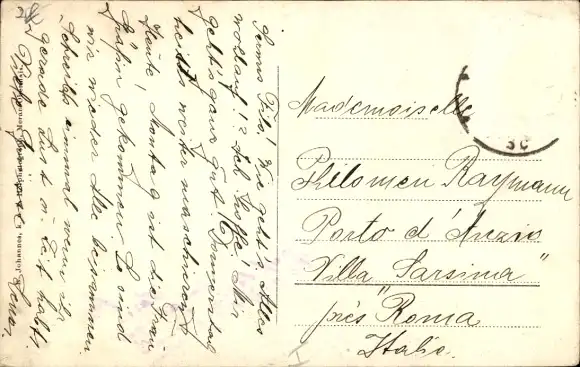 Servus Filo! Wie geht's Alles
wohlauf!? Ich hoffe! Mir
geht's ganz gut! Donnerstag
heißt's weiter marschieren!
Heute, Montag ist die Frau
Gräfin gekommen & sind
wir wieder Alle beisammen.
Schreibt einmal wenn
gerade Lust u. Zeit
Mademoiselle
Philomen Raymann
Porto d'Anzio
Villa Sarsina"
près "Roma
Italie.